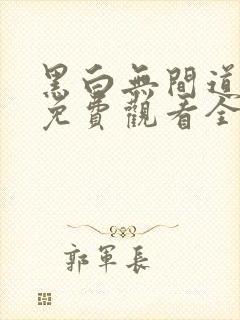 黑白無間道
免費觀看全
郭軍長